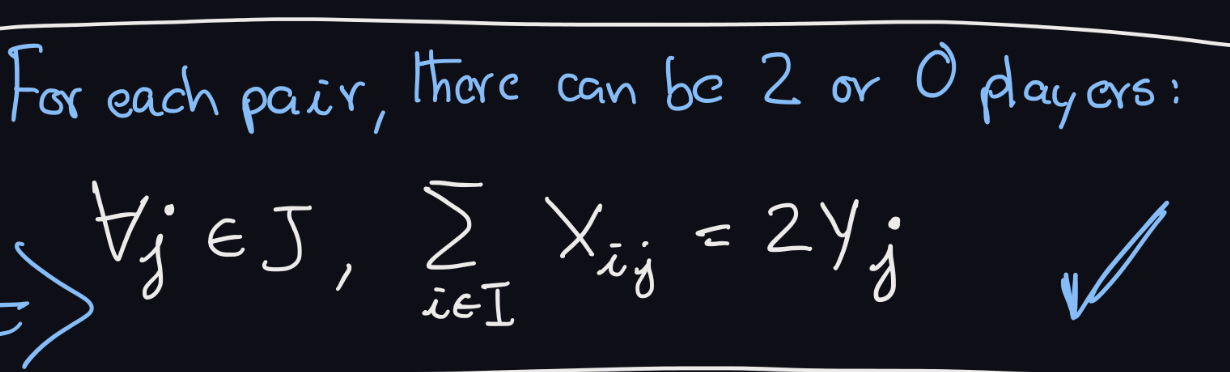 For each pair, there can be 2 or 0 players:
∀j ∈ J, ∑_{i∈I} X_{ij} = 2Y_j